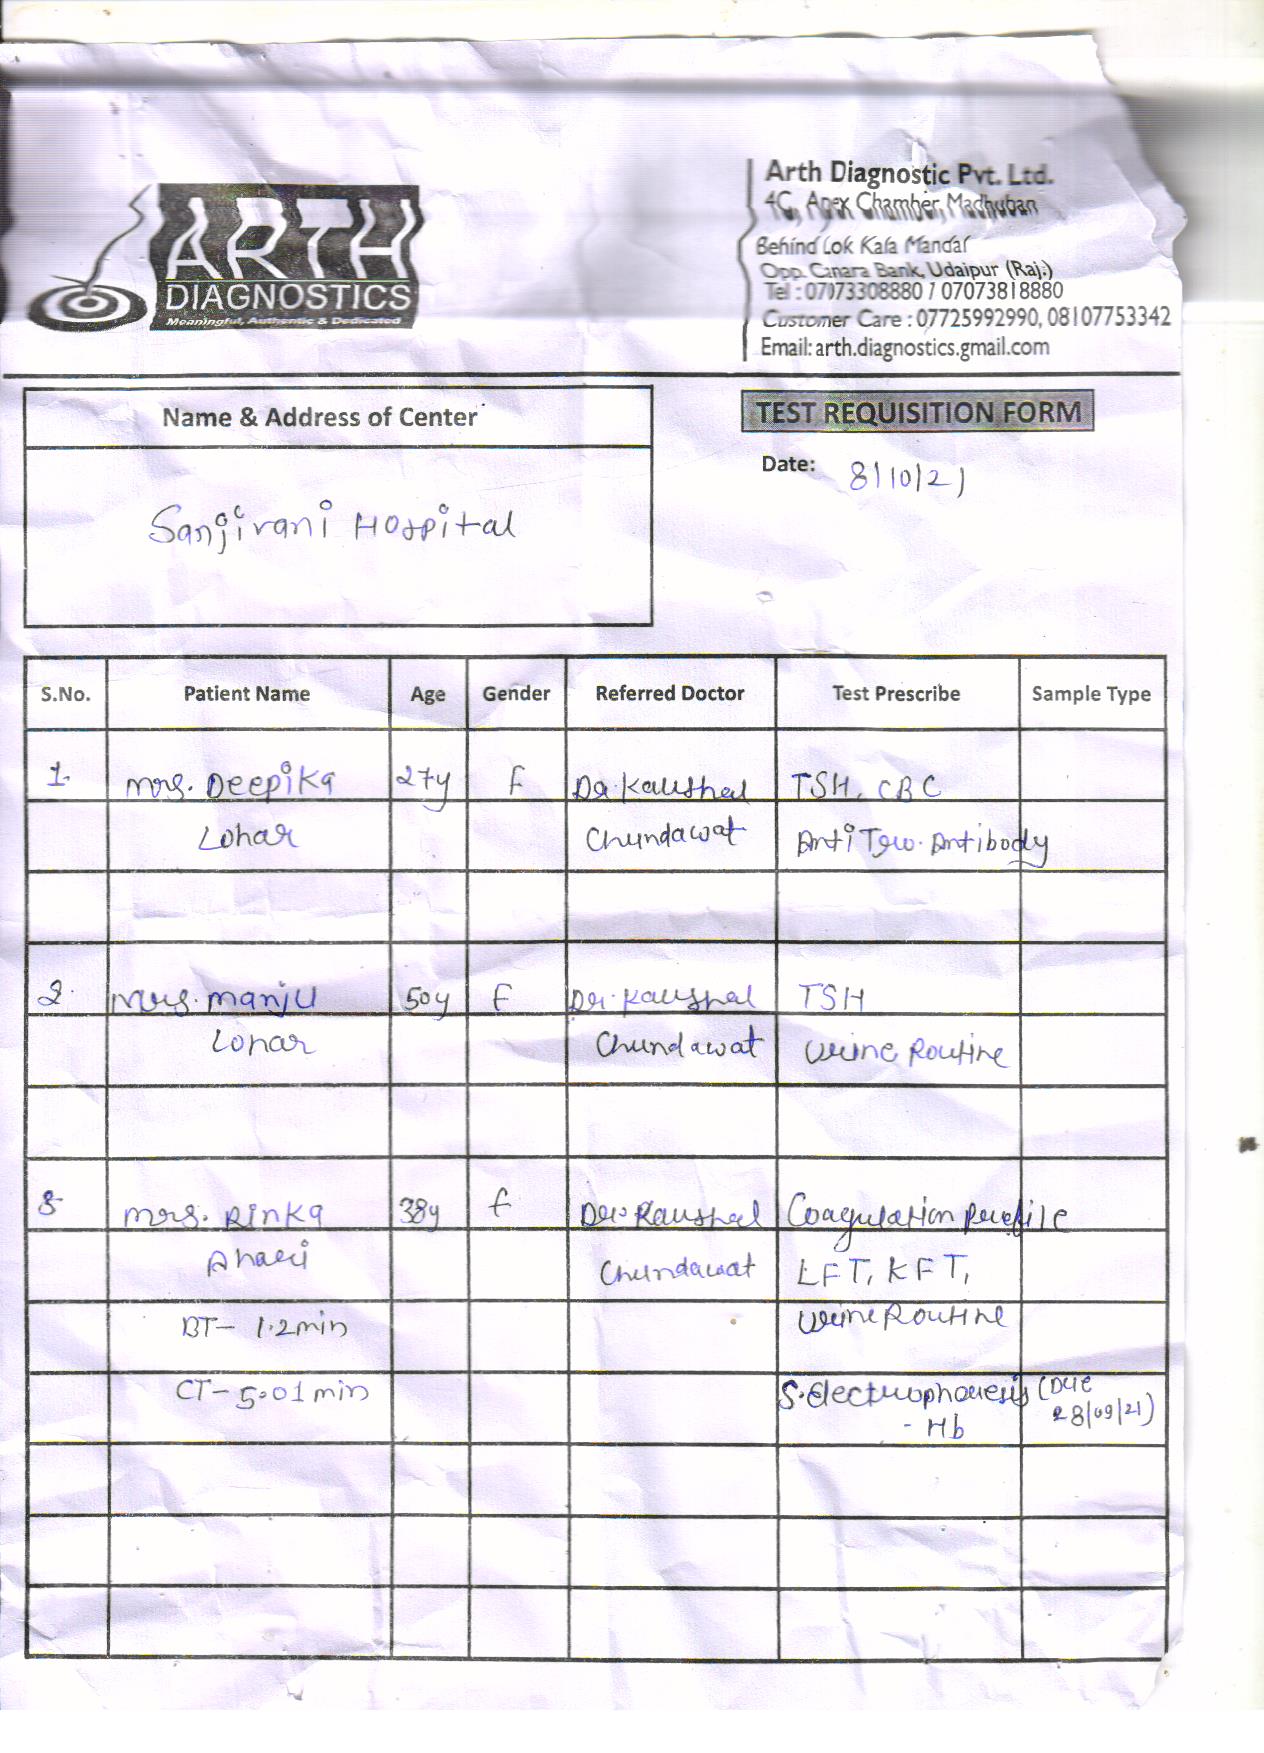 ARTH
DIAGNOSTICS
Meaningful, Authentic & Dedicated
Arth Diagnostic Pvt. Ltd.
4C, Apex Chamber, Madhuban
Behind Lok Kala Mandal
Opp. Canara Bank, Udaipur (Raj.)
Tel : 07073308880 / 07073818880
Customer Care : 07725992990, 08107753342
Email: arth.diagnostics.gmail.com
Name & Address of Center
TEST REQUISITION FORM
Date: 8/10/21
Sanjivani Hospital
S.No. Patient Name Age Gender Referred Doctor Test Prescribe Sample Type
1. Mrs. Deepika 27y F Dr. Kaushal TSH, CBC
Lohar Chundawat Anti Antibody
2. Mrs. Manju 50y F Dr. Kaushal TSH
Lohar Chundawat Urine Routine
3 Mrs. Rinka 38y F Dr. Kaushal Coagulation Profile
Ahari Chundawat LFT, KFT,
BT- 1.2 min Urine Routine
CT- 5.01 min S. Electrophoresis (Due
- Hb 28/09/21)